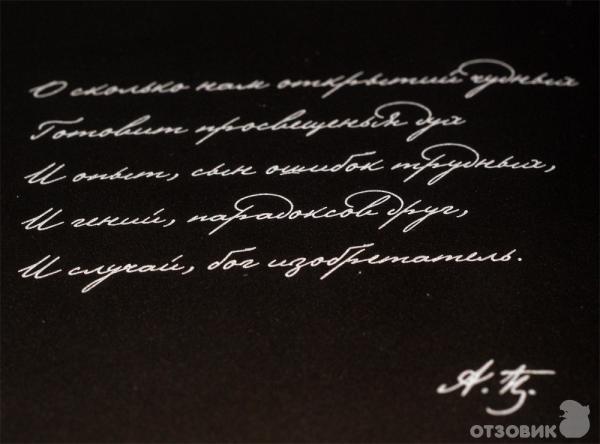 О сколько нам открытий чудных
Готовит просвещенья дух
И опыт, сын ошибок трудных,
И гений, парадоксов друг,
И случай, бог изобретатель.
А. П.
ОТЗОВИК